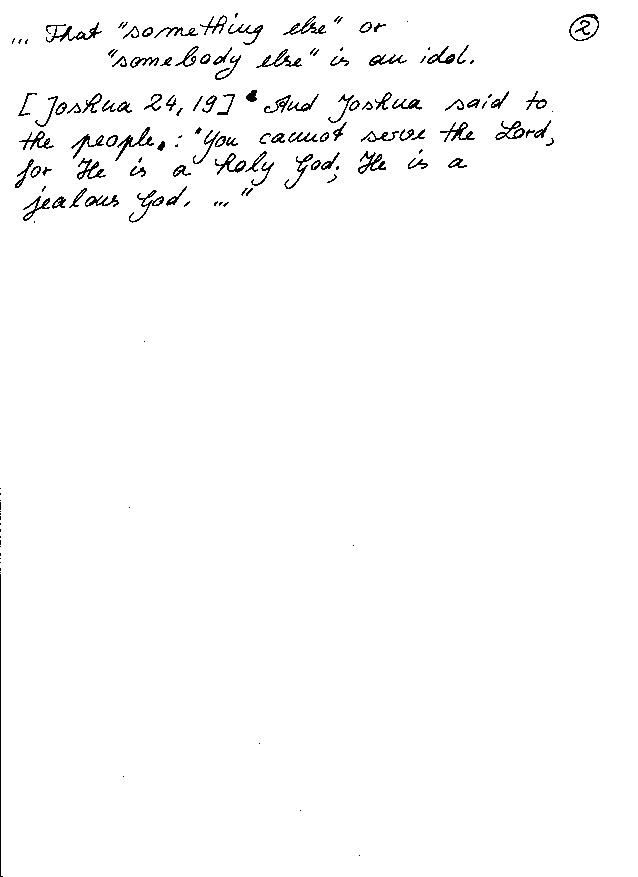 ... That "something else" or ②
"somebody else" is an idol.
[Joshua 24, 19] " And Joshua said to
the people.: "You cannot serve the Lord,
for He is a holy God; He is a
jealous God. ..."